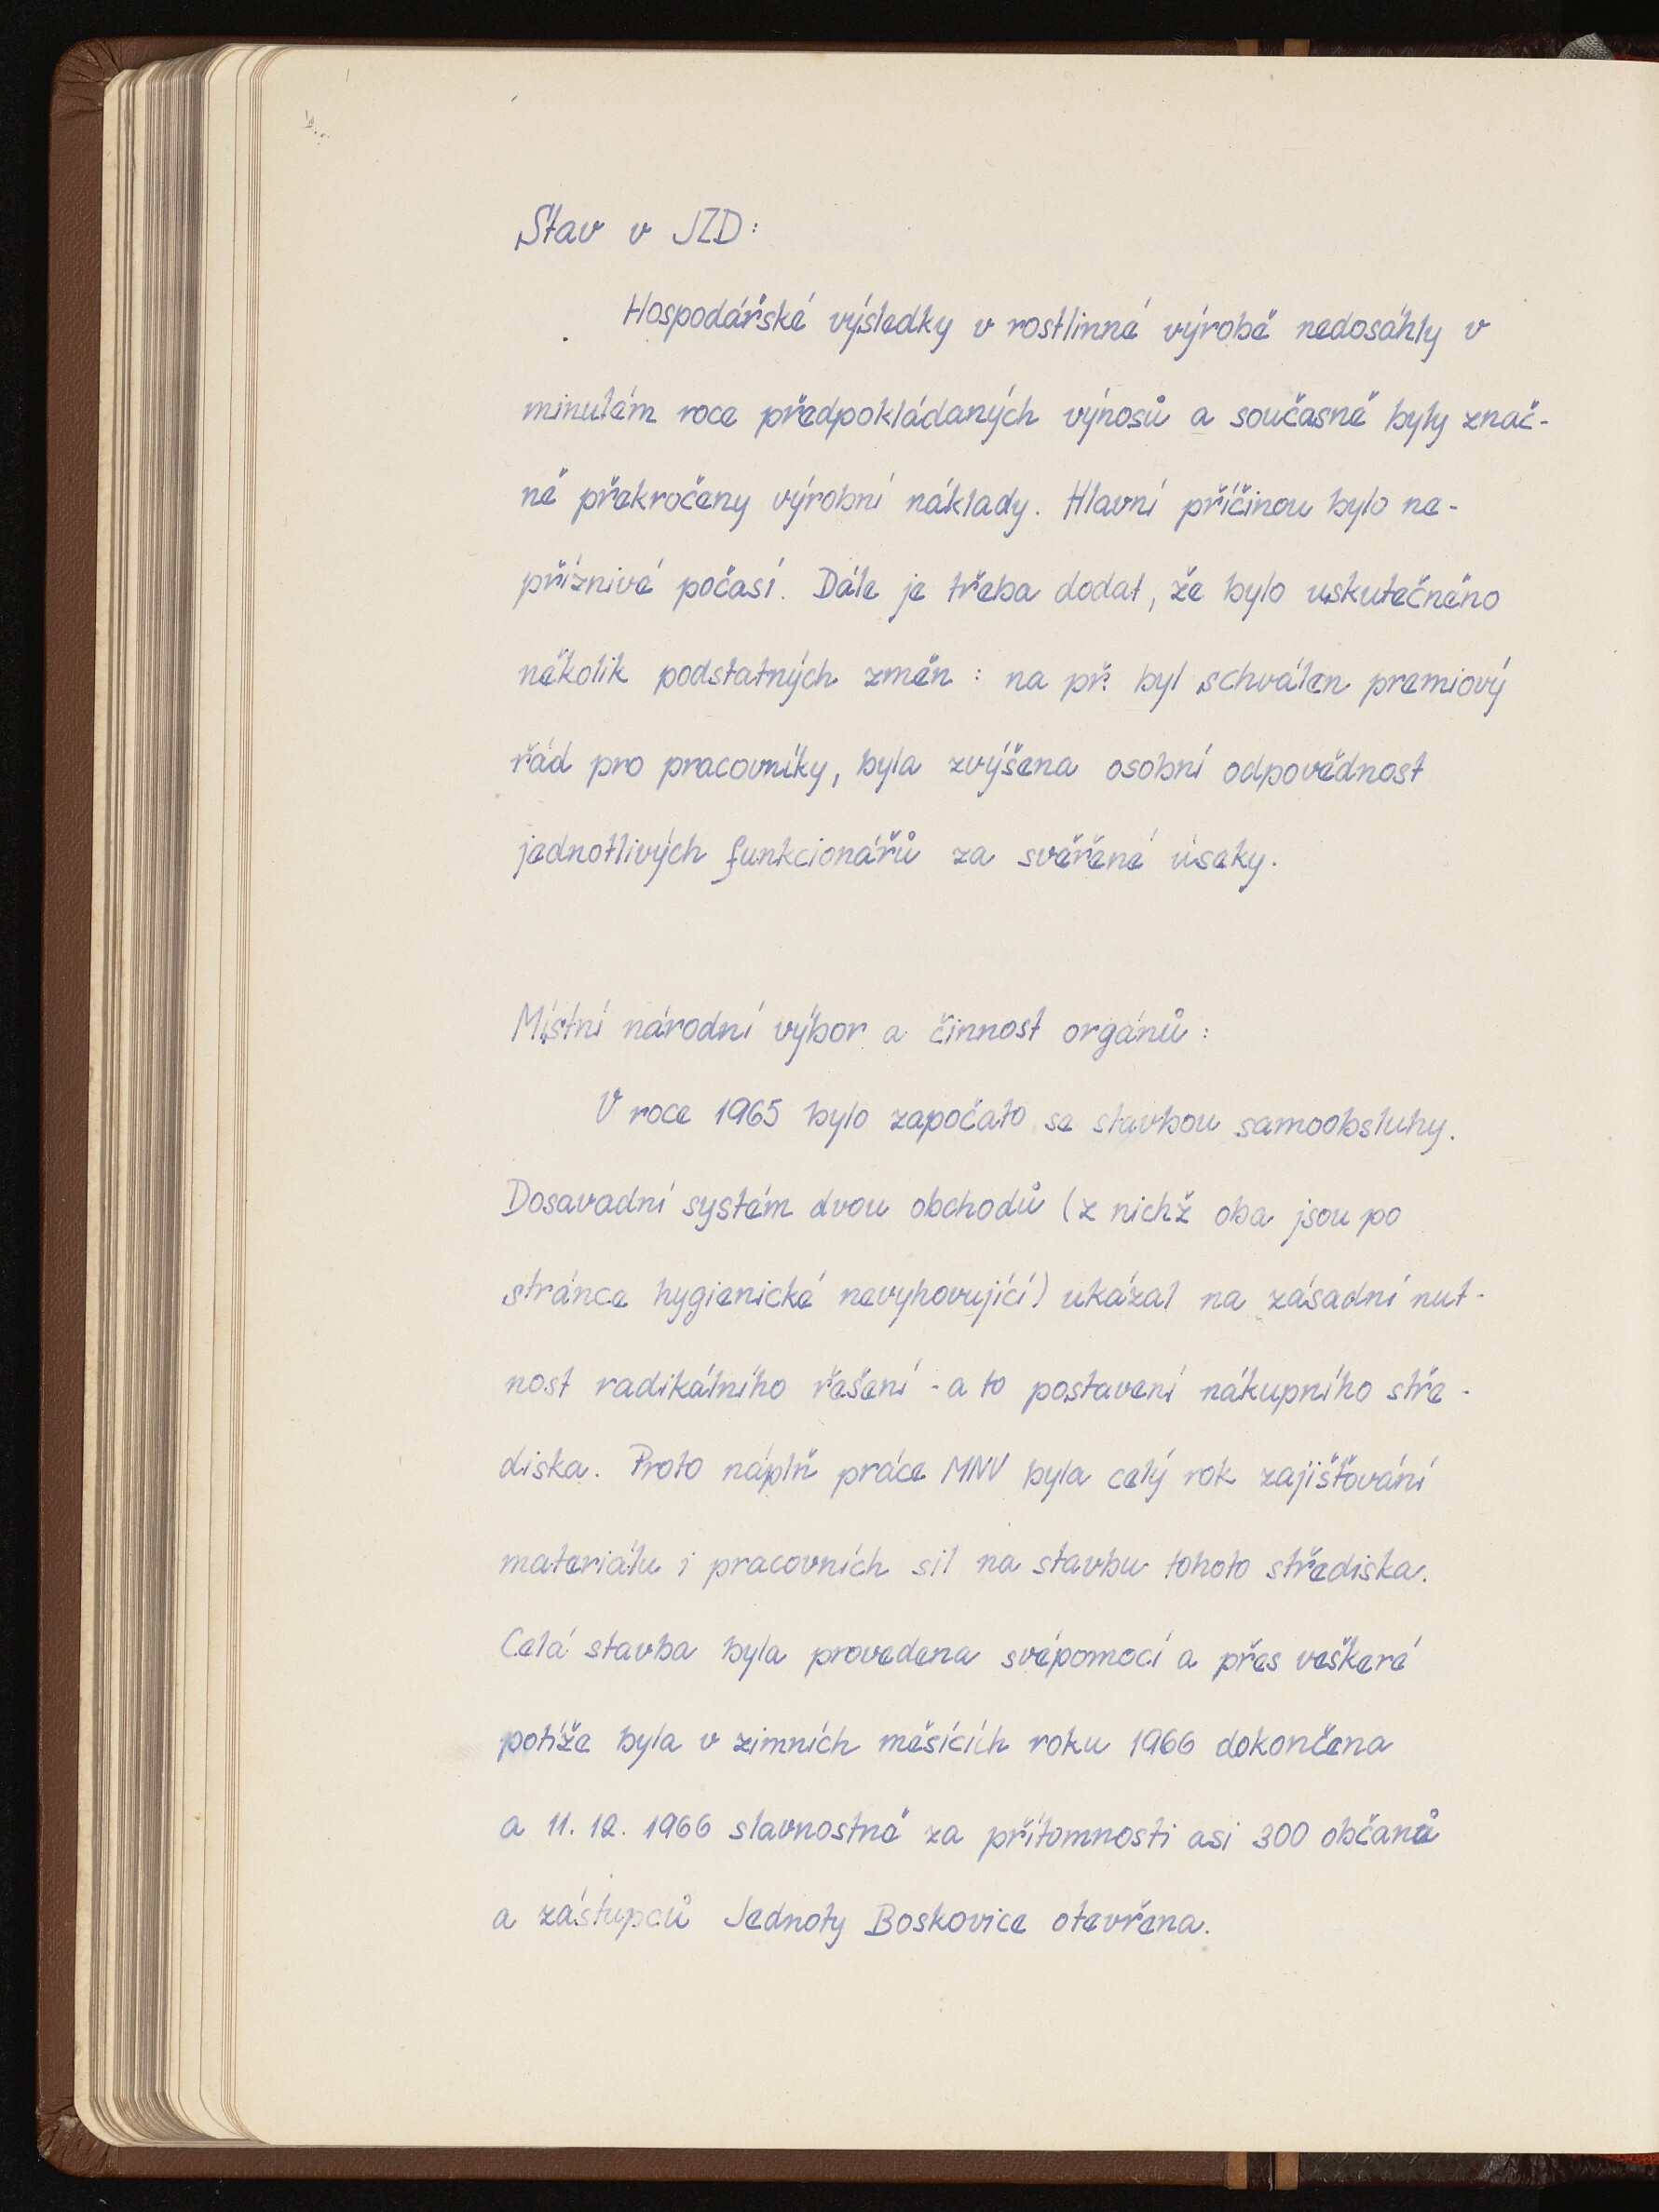 Stav v JZD:
Hospodářské výsledky v rostlinné výrobě nedosáhly v
minulém roce předpokládaných výnosů a současně byly znač-
ně překročeny výrobní náklady. Hlavní příčinou bylo ne-
příznivé počasí. Dále je třeba dodat, že bylo uskutečněno
několik podstatných změn : na př. byl schválen premiový
řád pro pracovníky, byla zvýšena osobní odpovědnost
jednotlivých funkcionářů za svěřené úseky.
Místní národní výbor a činnost orgánů :
V roce 1965 bylo započato se stavbou samoobsluhy.
Dosavadní systém dvou obchodů (z nichž oba jsou po
stránce hygienické nevyhovující) ukázal na zásadní nut-
nost radikálního řešení - a to postavení nákupního stře-
diska. Proto náplň práce MNV byla celý rok zajišťování
materiálu i pracovních sil na stavbu tohoto střediska.
Celá stavba byla provedena svépomocí a přes veškeré
potíže byla v zimních měsících roku 1966 dokončena
a 11. 12. 1966 slavnostně za přítomnosti asi 300 občanů
a zástupců Jednoty Boskovice otevřena.